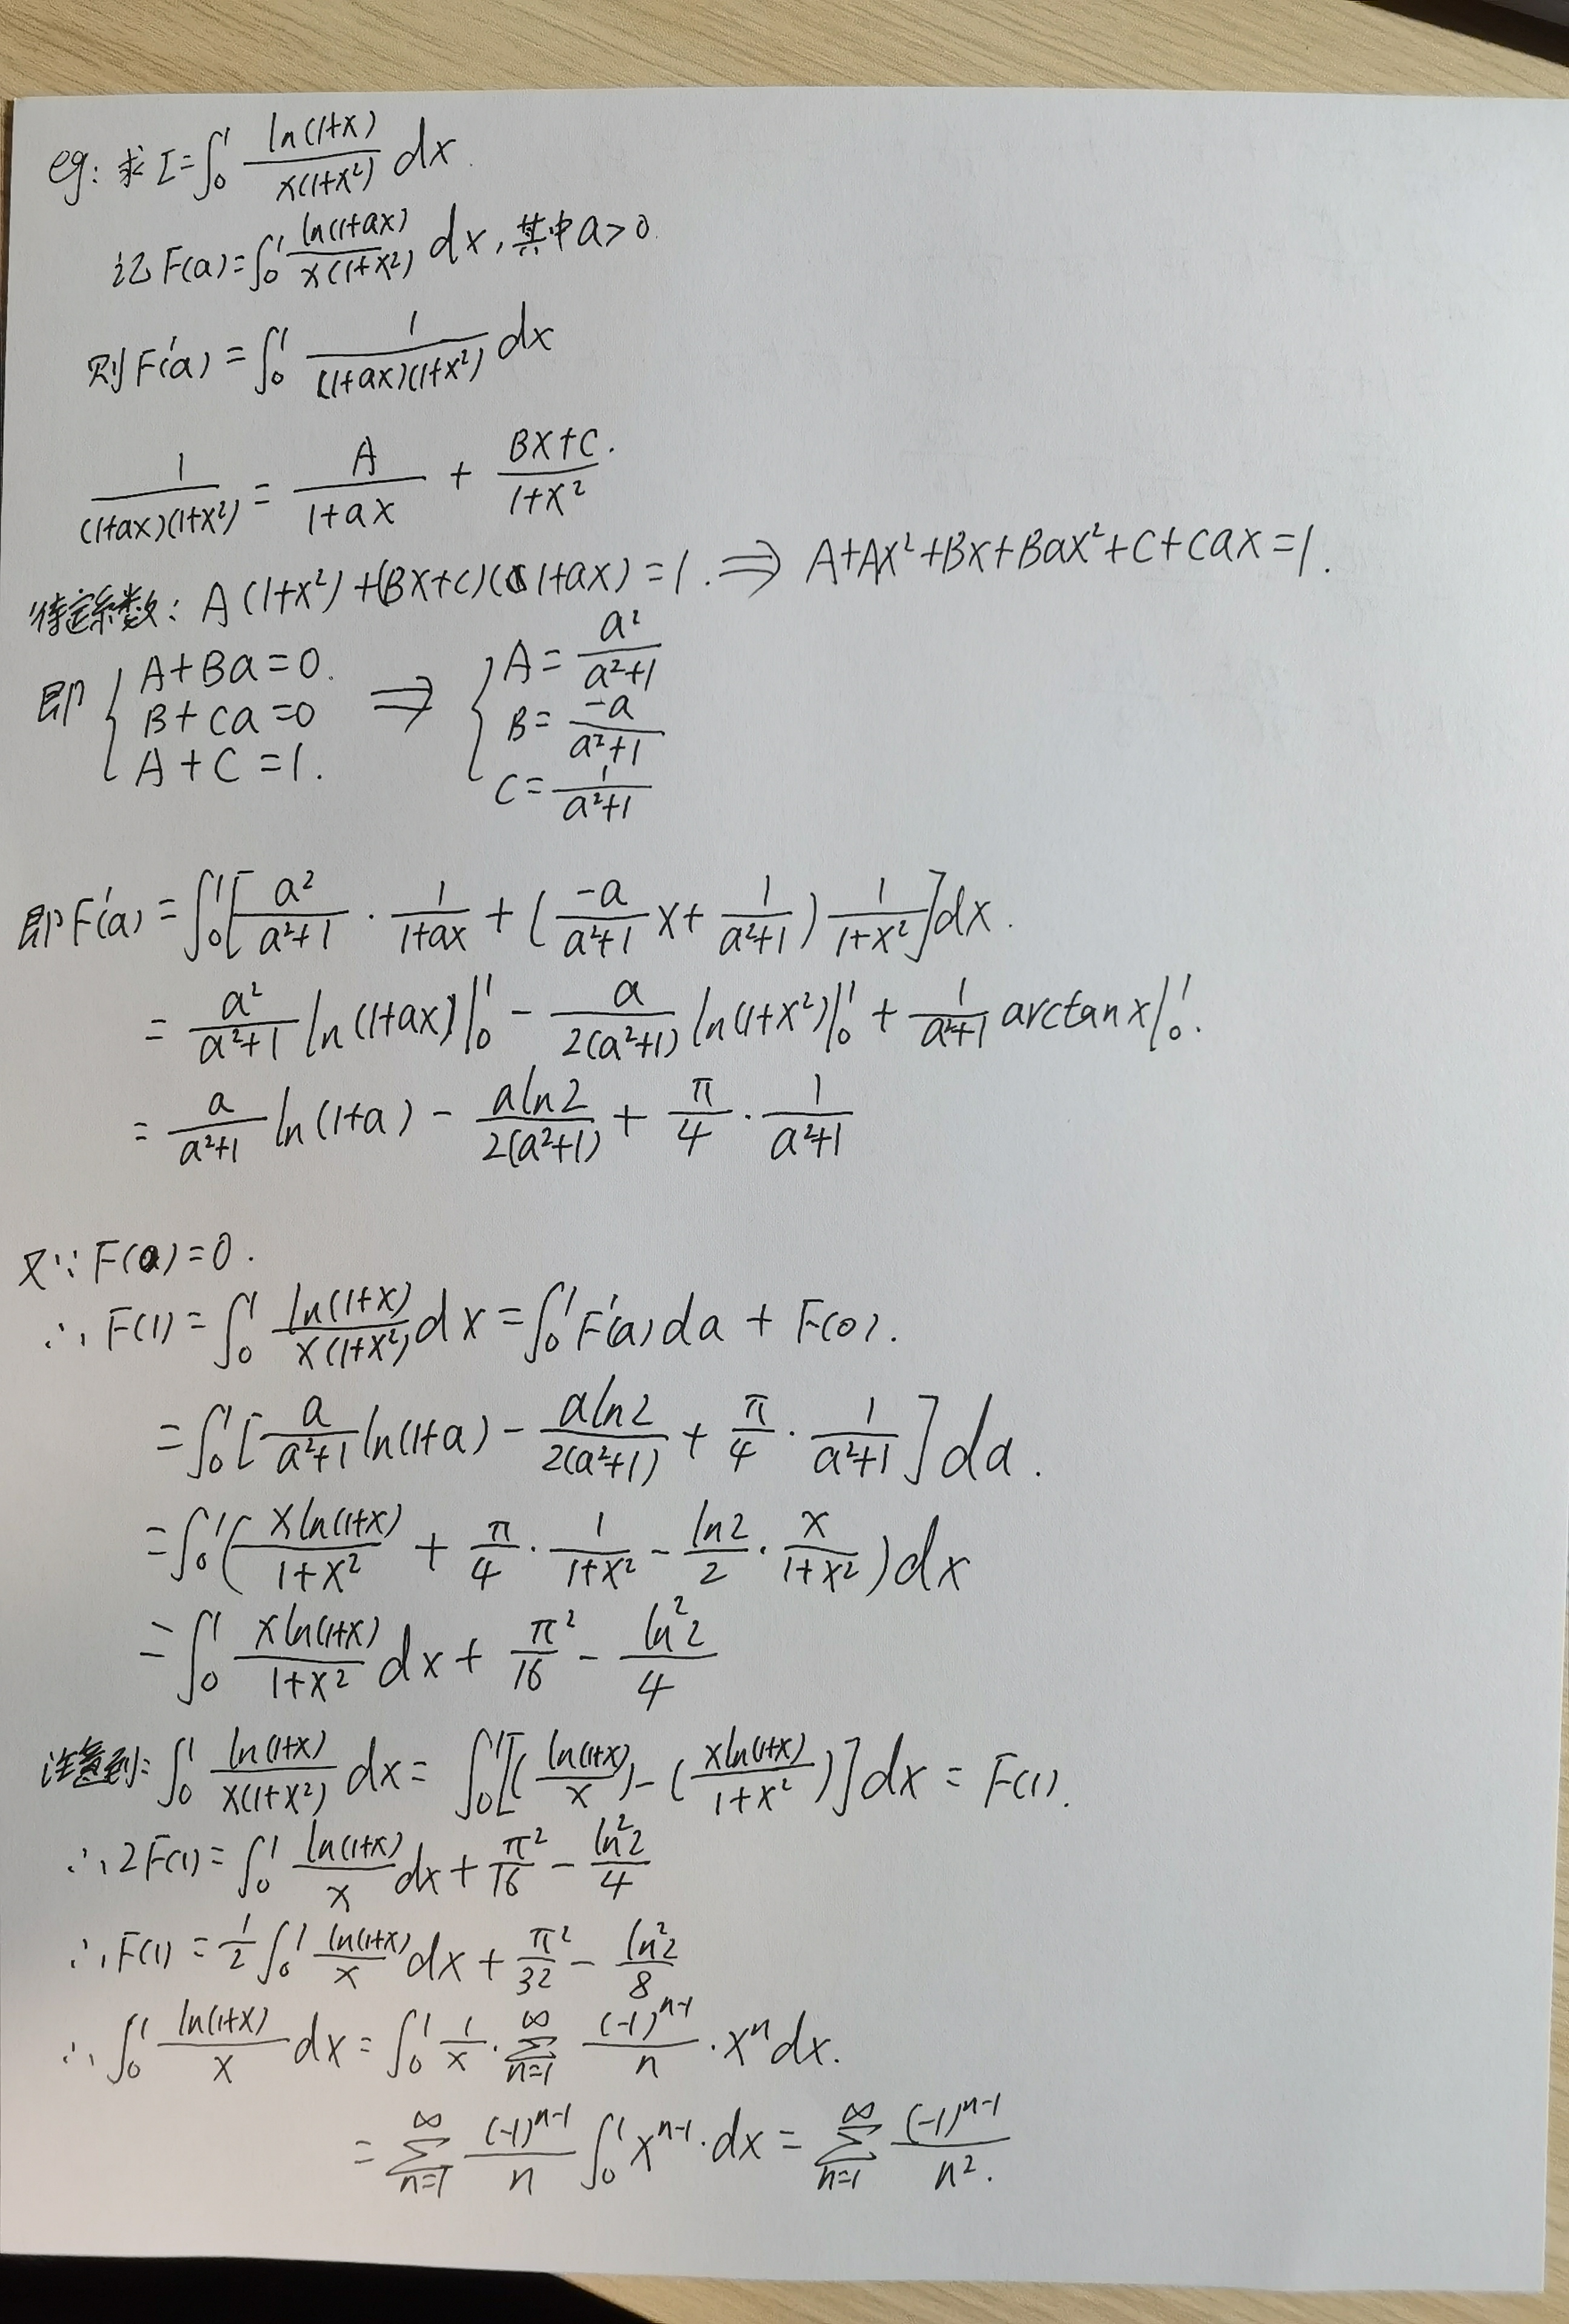 eg: 求 I=∫₀¹ ln(1+x)/(x(1+x²)) dx.
记 F(a)=∫₀¹ ln(1+ax)/(x(1+x²)) dx, 其中 a>0.
则 F'(a)=∫₀¹ 1/((1+ax)(1+x²)) dx
1/((1+ax)(1+x²)) = A/(1+ax) + (Bx+C)/(1+x²).
待定系数: A(1+x²)+(Bx+C)(1+ax)=1. ⇒ A+Ax²+Bx+Bax²+C+Cax=1.
即 { A+Ba=0. B+Ca=0 A+C=1. ⇒ { A=a²/(a²+1) B=-a/(a²+1) C=1/(a²+1)
即 F'(a)=∫₀¹[a²/(a²+1)·1/(1+ax)+(-a/(a²+1) x+1/(a²+1))1/(1+x²)]dx.
= a²/(a²+1) ln(1+ax)|₀¹ - a/(2(a²+1)) ln(1+x²)|₀¹ + 1/(a²+1) arctanx|₀¹.
= a/(a²+1) ln(1+a) - aln2/(2(a²+1)) + π/4·1/(a²+1)
又∵ F(0)=0.
∴ F(1)=∫₀¹ ln(1+x)/(x(1+x²)) dx=∫₀¹F'(a)da+F(0).
=∫₀¹[a/(a²+1) ln(1+a) - aln2/(2(a²+1)) + π/4·1/(a²+1)]da.
=∫₀¹(xln(1+x)/(1+x²) + π/4·1/(1+x²) - ln2/2·x/(1+x²))dx
=∫₀¹ xln(1+x)/(1+x²) dx + π²/16 - ln²2/4
注意到: ∫₀¹ ln(1+x)/(x(1+x²)) dx=∫₀¹[(ln(1+x)/x)-(xln(1+x)/(1+x²))]dx=F(1).
∴ 2F(1)=∫₀¹ ln(1+x)/x dx+π²/16-ln²2/4
∴ F(1)=1/2∫₀¹ ln(1+x)/x dx+π²/32-ln²2/8
∴ ∫₀¹ ln(1+x)/x dx=∫₀¹ 1/x·∑ₙ₌₁^∞ (-1)ⁿ⁻¹/n·xⁿdx.
=∑ₙ₌₁^∞ (-1)ⁿ⁻¹/n ∫₀¹xⁿ⁻¹·dx=∑ₙ₌₁^∞ (-1)ⁿ⁻¹/n².